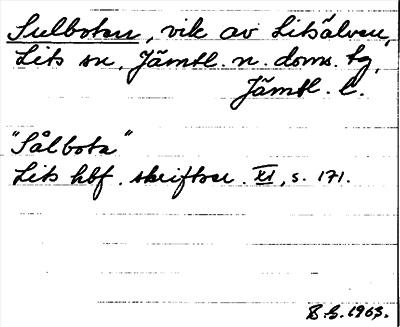 Sulboten, vik av Litsälven,
Lits sn, Jämtl. n. doms. tg,
Jämtl. l.
"Sålbota"
Lits hbf. skriftser. XI, s. 171.
B.G. 1963.